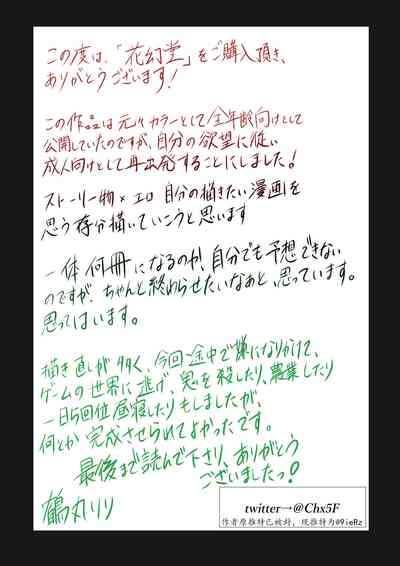 この度は、「花幻堂」をご購入頂き、
ありがとうございます!
この作品は元々カラーとして全年齢向けとして
公開していたのですが、自分の欲望に従い
成人向けとして再出発することにしました!
ストーリー物×エロ 自分の描きたい漫画を
思う存分描いていこうと思います
一体何冊になるのか、自分でも予想できない
のですが、ちゃんと終わらせたいなあと、思っています。
思ってはいます。
描き直しが多く、今回途中で嫌になりかけて、
ゲームの世界に逃げ、鬼を殺したり、農業したり
一日5回位昼寝したりもしましたが、
何とか完成させられてよかったです。
最後まで読んで下さり、ありがとう
ございましたっ!
鶴丸リリ
twitter→@Chx5F
作者原推特已被封，现推特为@9ieRz